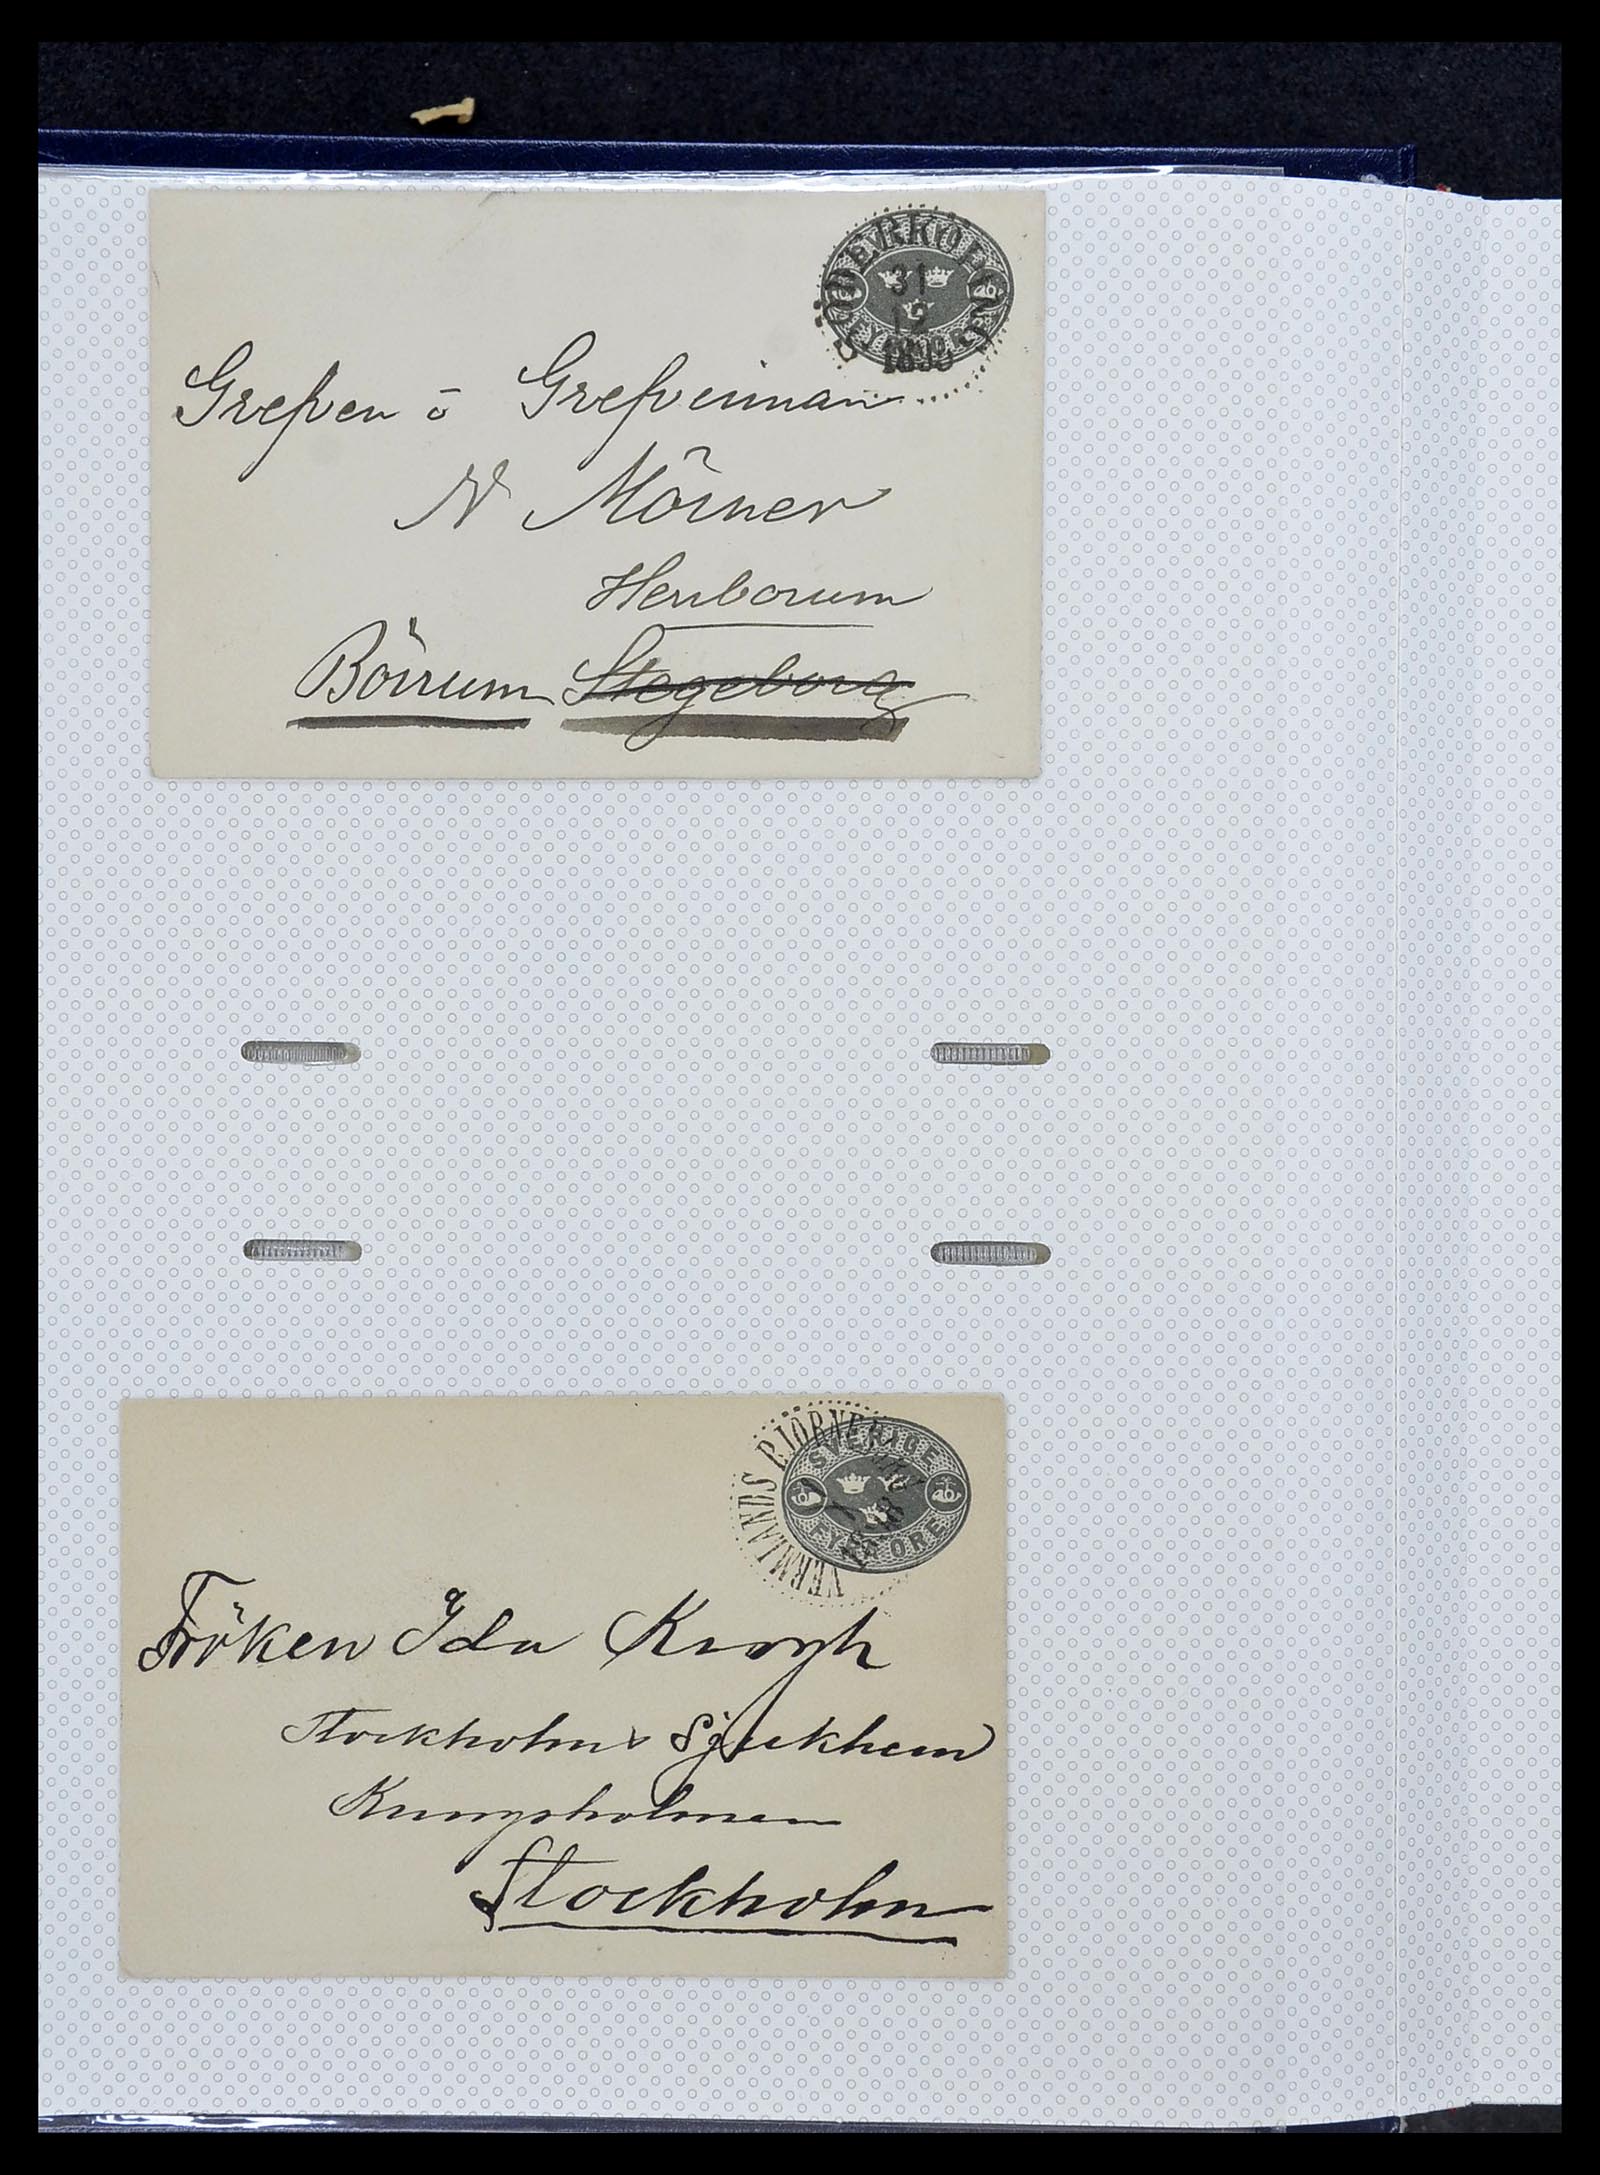 SÖDERKÖPING
31
12
Grefven o Grefvinnan
N Mörner
Herrborum
Börrum Stegeborg
VERMLANDS BJÖRNE
SVERIGE
FYRA ÖRE
Fröken Ida Krogh
Stockholms Sjukhem
Kungsholmen
Stockholm